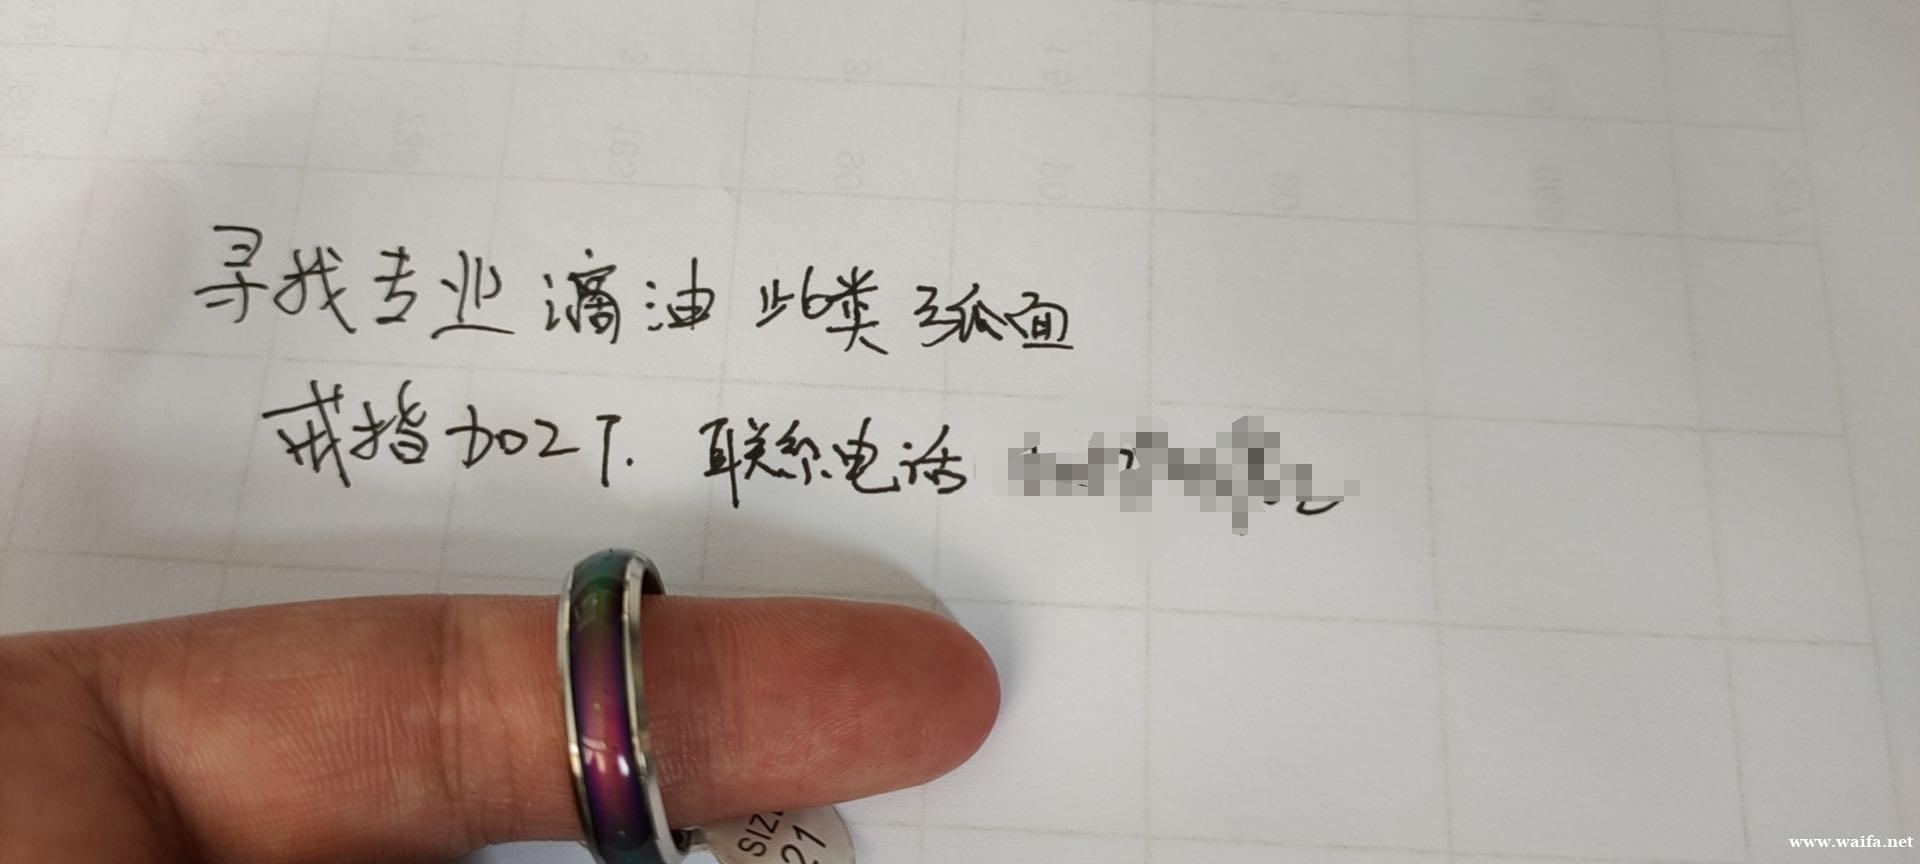 寻找专业滴油此类弧面
戒指加工厂.联系电话
SIZE
21
www.waifa.net